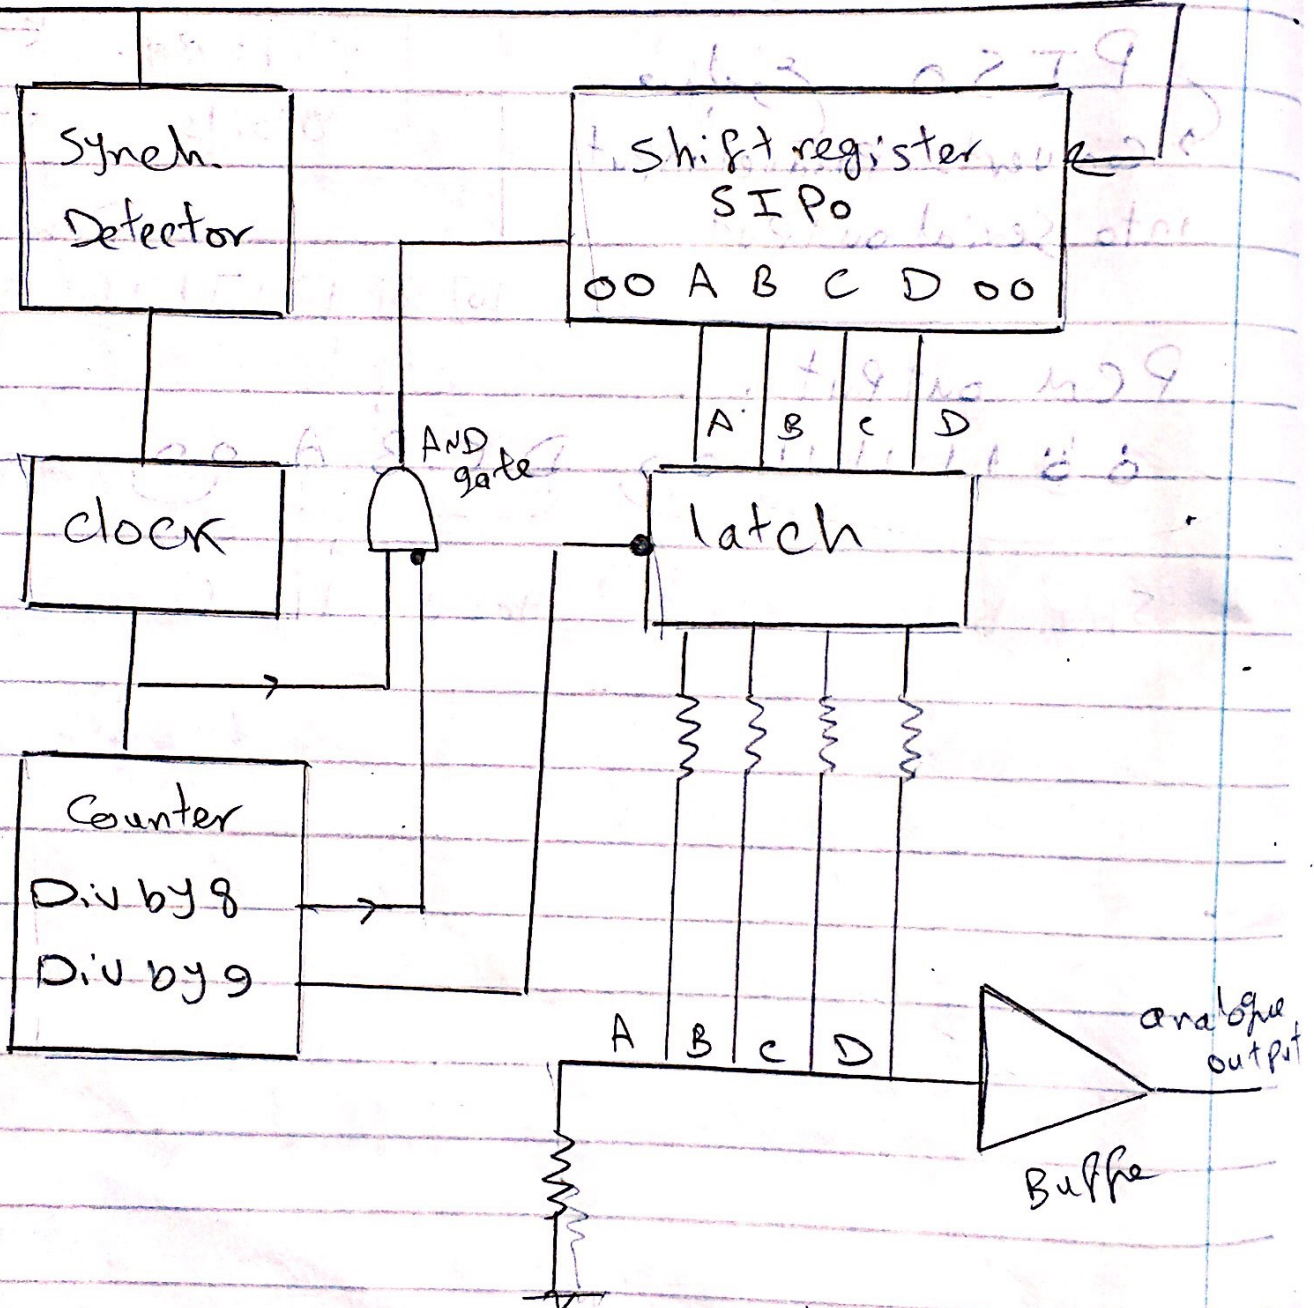 Synch.
Detector
Shift register
SIPO
00 A B C D 00
A B C D
AND
gate
clock
latch
Counter
Div by 8
Div by 9
A B C D
analogue
output
Buffe